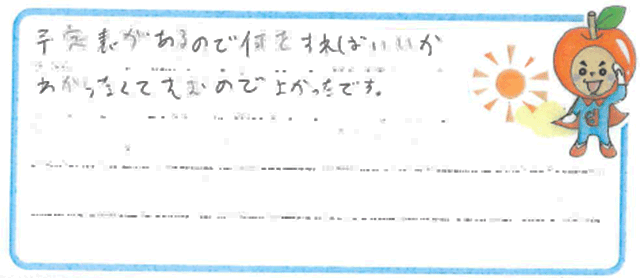 予定表があるので何をすればいいか
わからなくてすむので上かったです。